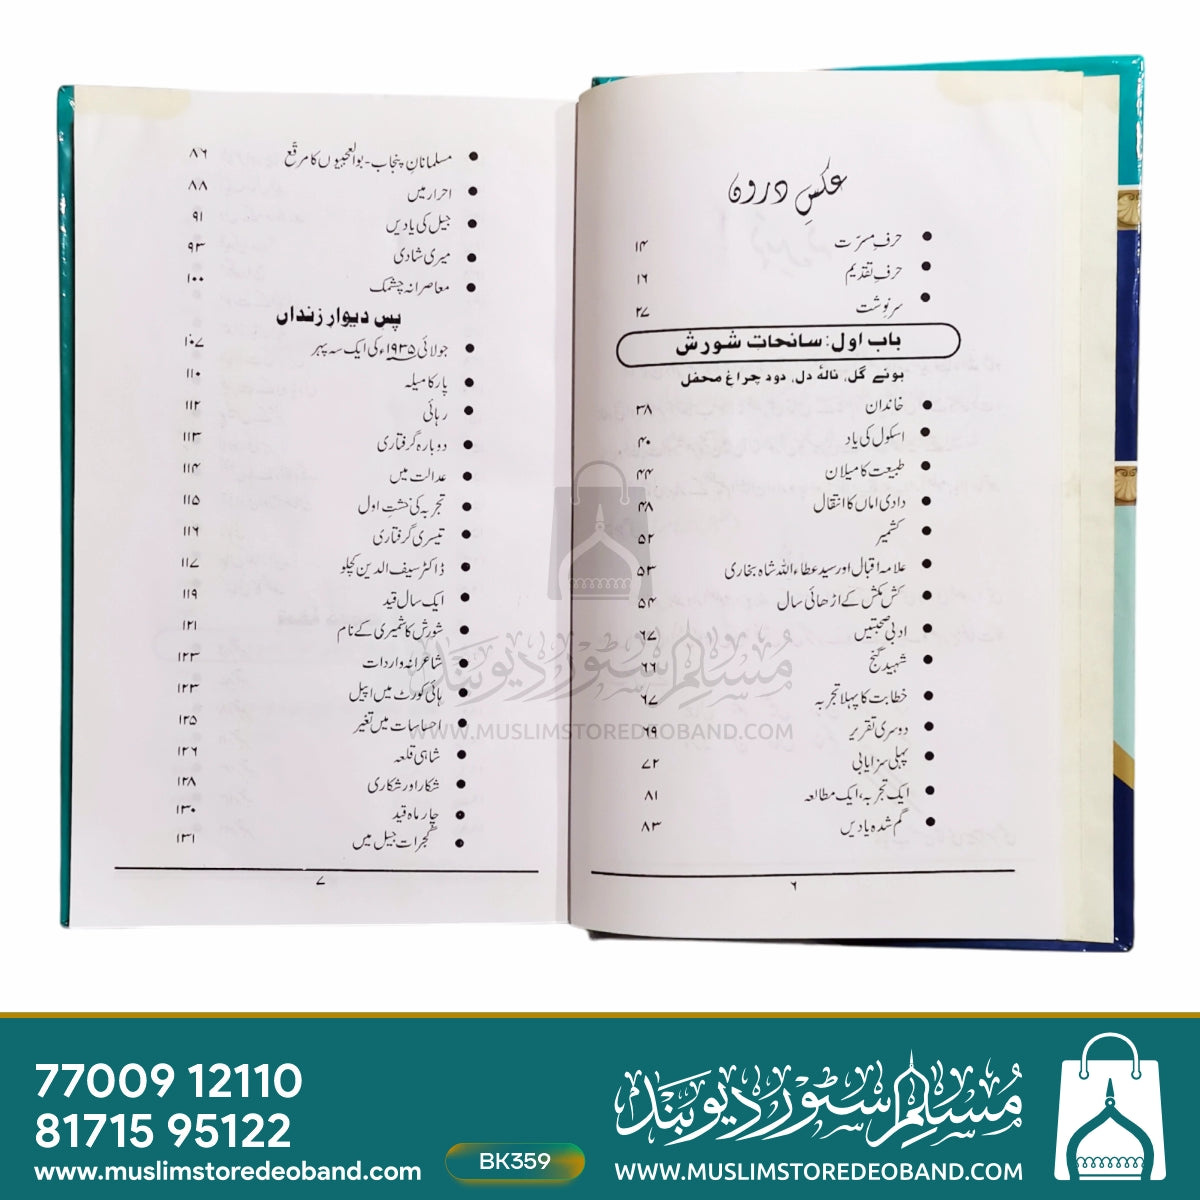 عکسِ درون
حرفِ مسرّت ۱۴
حرفِ تقدیم ۱۶
سرنوشت ۲۷
باب اول: سانحاتِ شورش
بوئے گل، نالۂ دل، دودِ چراغِ محفل
خاندان ۳۸
اسکول کی یاد ۴۰
طبیعت کا میلان ۴۴
دادی اماں کا انتقال ۴۸
کشمیر ۵۲
علامہ اقبال اور سید عطاء اللہ شاہ بخاری ۵۳
کش مکش کے اڑھائی سال ۵۴
ادبی صحبتیں ۶۷
شہید گنج ۶۶
خطابت کا پہلا تجربہ ۶۷
دوسری تقریر ۶۹
پہلی سزایابی ۷۲
ایک تجربہ، ایک مطالعہ ۸۱
گم شدہ یادیں ۸۳
۶
مسلمانانِ پنجاب - بوالعجبیوں کا مرقع ۸۶
احرار میں ۸۸
جیل کی یادیں ۹۱
میری شادی ۹۳
معاصرانہ چشمک ۱۰۰
پسِ دیوارِ زنداں
جولائی ۱۹۳۵ء کی ایک سہ پہر ۱۰۷
پار کا میلہ ۱۱۰
رہائی ۱۱۲
دوبارہ گرفتاری ۱۱۳
عدالت میں ۱۱۴
تجربہ کی خشتِ اول ۱۱۵
تیسری گرفتاری ۱۱۶
ڈاکٹر سیف الدین کچلو ۱۱۷
ایک سال قید ۱۱۹
شورش کاشمیری کے نام ۱۲۱
شاعرانہ واردات ۱۲۳
ہائی کورٹ میں اپیل ۱۲۳
احساسات میں تغیر ۱۲۵
شاہی قلعہ ۱۲۶
شکار اور شکاری ۱۲۸
چار ماہ قید ۱۳۰
گجرات جیل میں ۱۳۱
۷
مسلم سٹور دیوبند
WWW.MUSLIMSTOREDEOBAND.COM
77009 12110
81715 95122
www.muslimstoredeoband.com
BK359
مسلم سٹور دیوبند
WWW.MUSLIMSTOREDEOBAND.COM